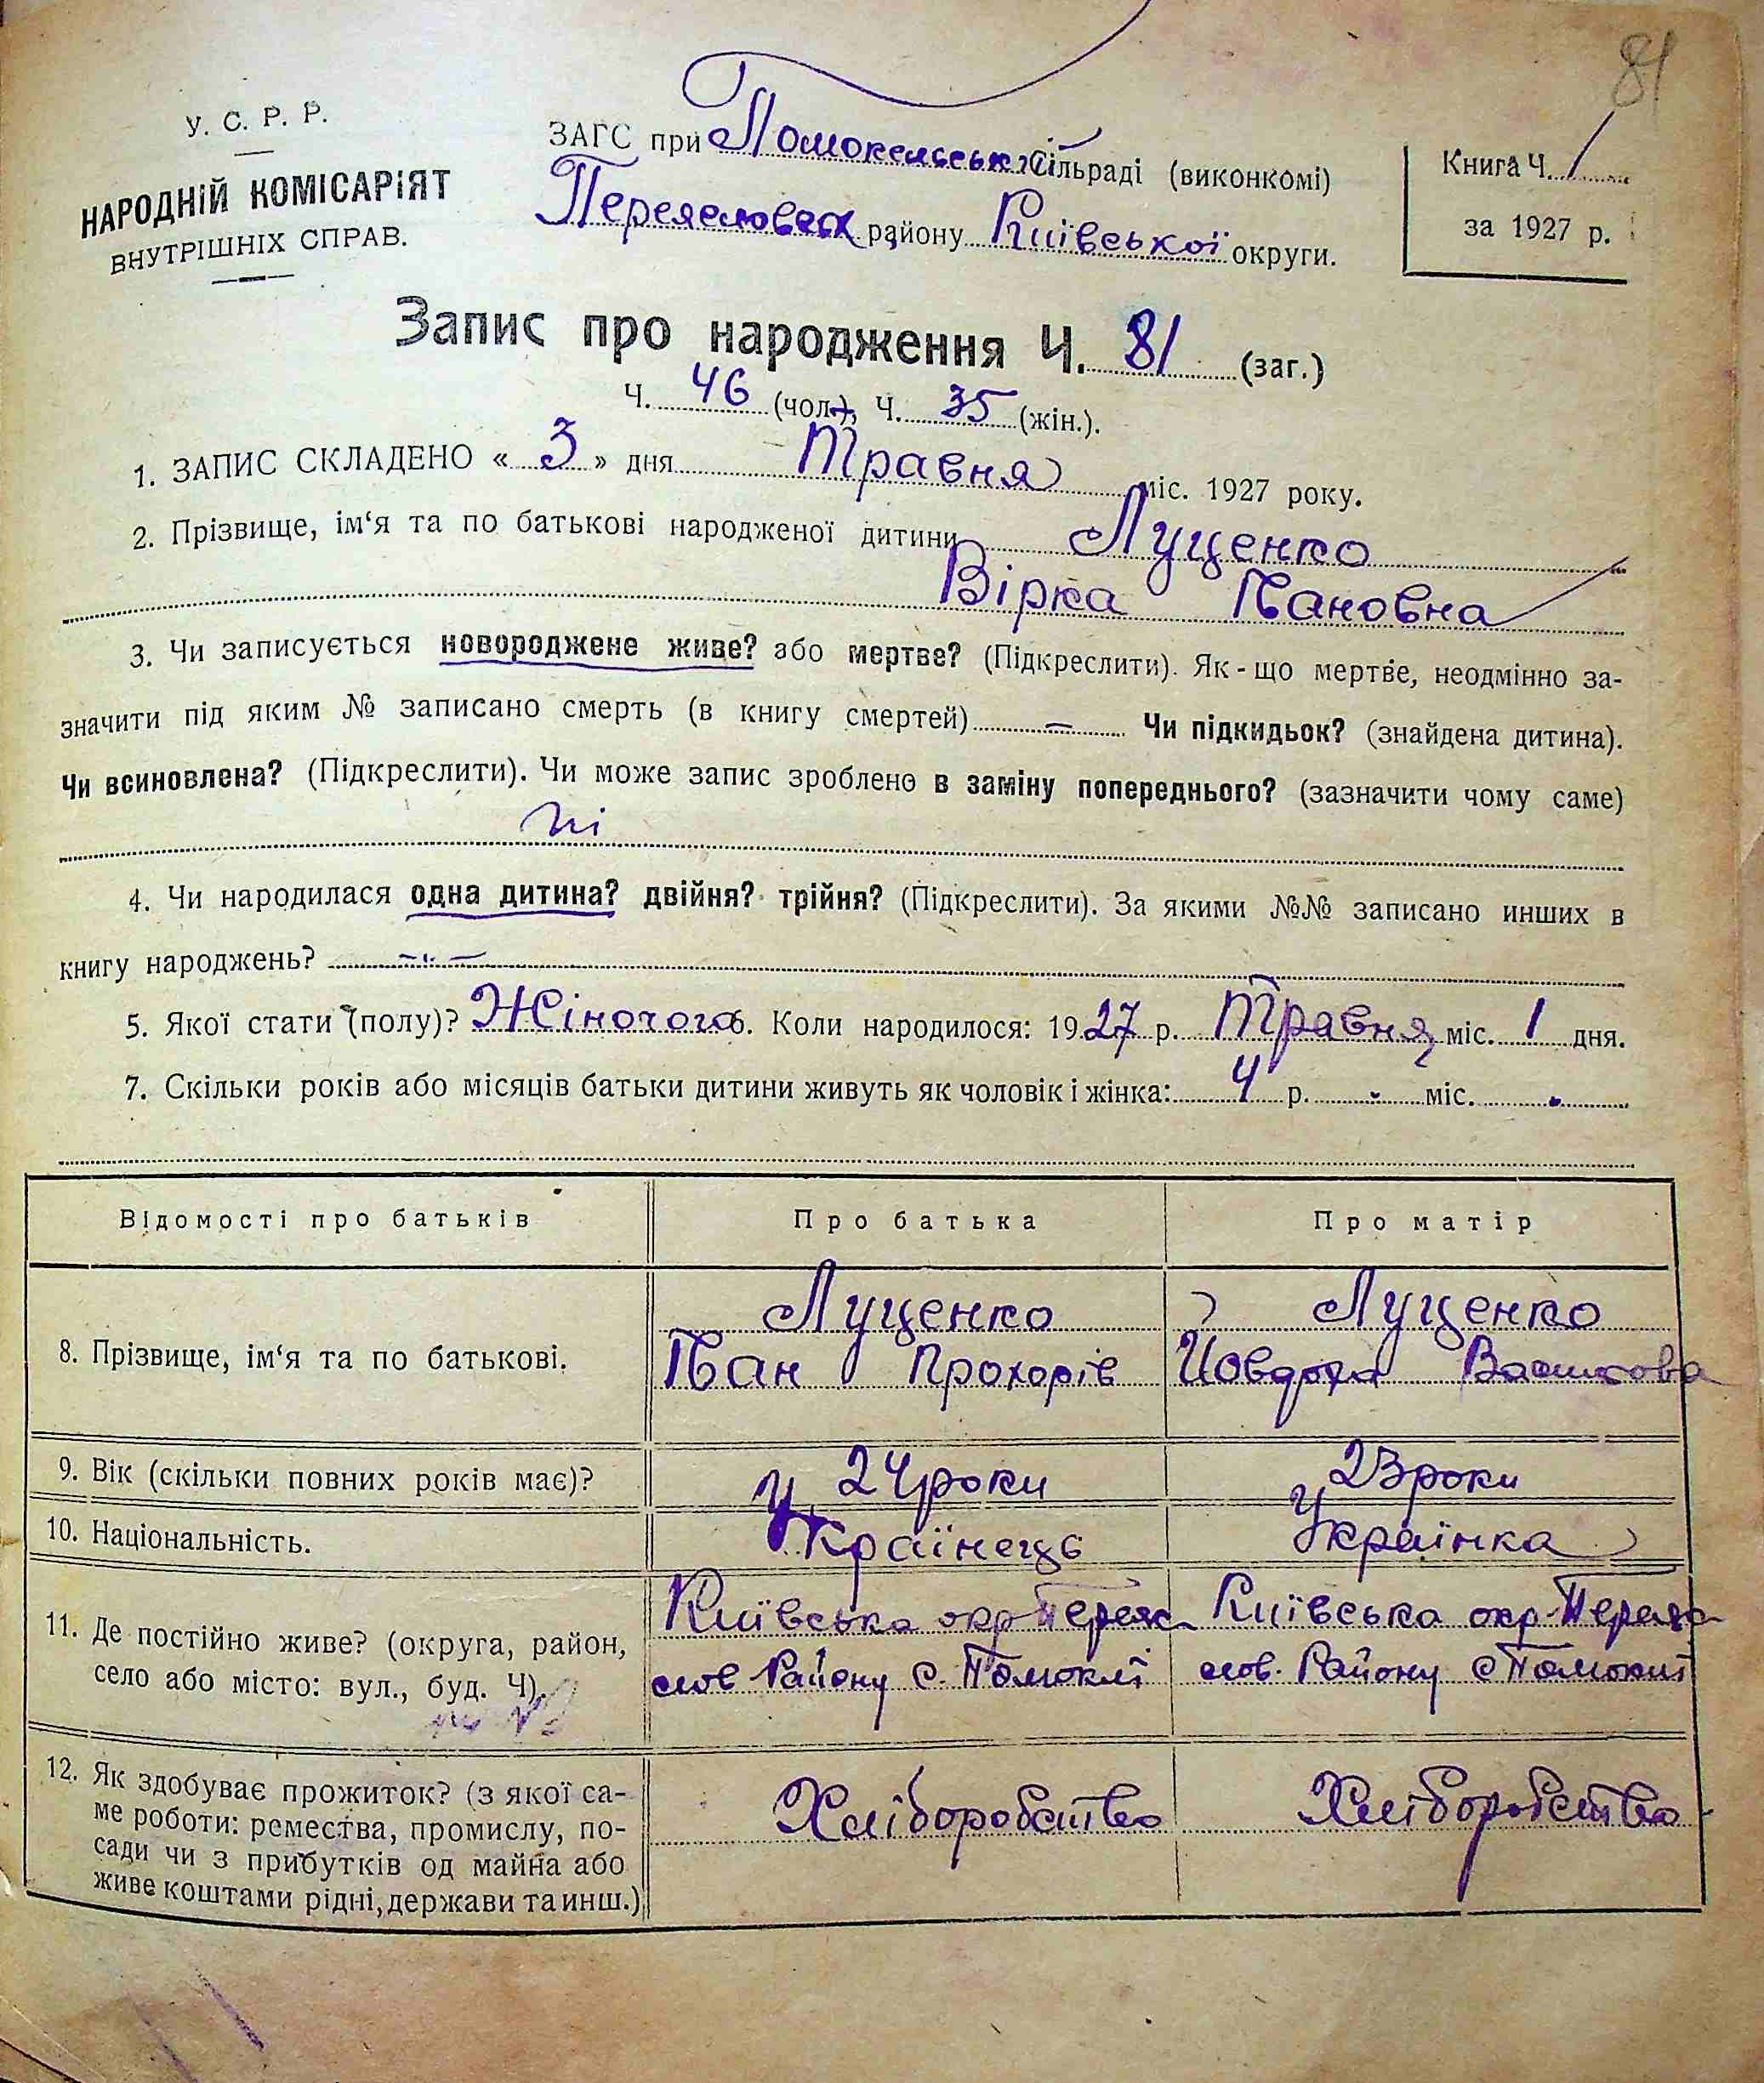 81
У. С. Р. Р.
НАРОДНІЙ КОМІСАРІЯТ
ВНУТРІШНІХ СПРАВ.
ЗАГС при Помокельськ. Сільраді (виконкомі)
Переяславськ району Київської округи.
Книга Ч. 1
за 1927 р.
Запис про народження Ч. 81 (заг.)
Ч. 46 (чол.), Ч. 35 (жін.).
1. ЗАПИС СКЛАДЕНО « 3 » дня Травня міс. 1927 року.
2. Прізвище, ім‘я та по батькові народженої дитини Луценко
Вірка Івановна
3. Чи записується новороджене живе? або мертве? (Підкреслити). Як - що мертве, неодмінно за-
значити під яким № записано смерть (в книгу смертей) — Чи підкидьок? (знайдена дитина).
Чи всиновлена? (Підкреслити). Чи може запис зроблено в заміну попереднього? (зазначити чому саме)
ні
4. Чи народилася одна дитина? двійня? трійня? (Підкреслити). За якими №№ записано инших в
книгу народжень? —„—
5. Якої стати (полу)? Жіночого 6. Коли народилося: 1927 р. Травня міс. 1 дня.
7. Скільки років або місяців батьки дитини живуть як чоловік і жінка: 4 р. - міс.
Відомості про батьків Про батька Про матір
8. Прізвище, ім‘я та по батькові. Луценко Луценко
Іван Прохорів Йовдоха Василова
9. Вік (скільки повних років має)? 24 роки 23 роки
10. Національність. Українець Українка
11. Де постійно живе? (округа, район,
село або місто: вул., буд. Ч).
Київська окр Переяс
лов Району с. Помоклі
Київська окр. Переяс
лов. Району с Помоклі
12. Як здобуває прожиток? (з якої са-
ме роботи: ремества, промислу, по-
сади чи з прибутків од майна або
живе коштами рідні, держави та инш.)
Хліборобство Хліборобство